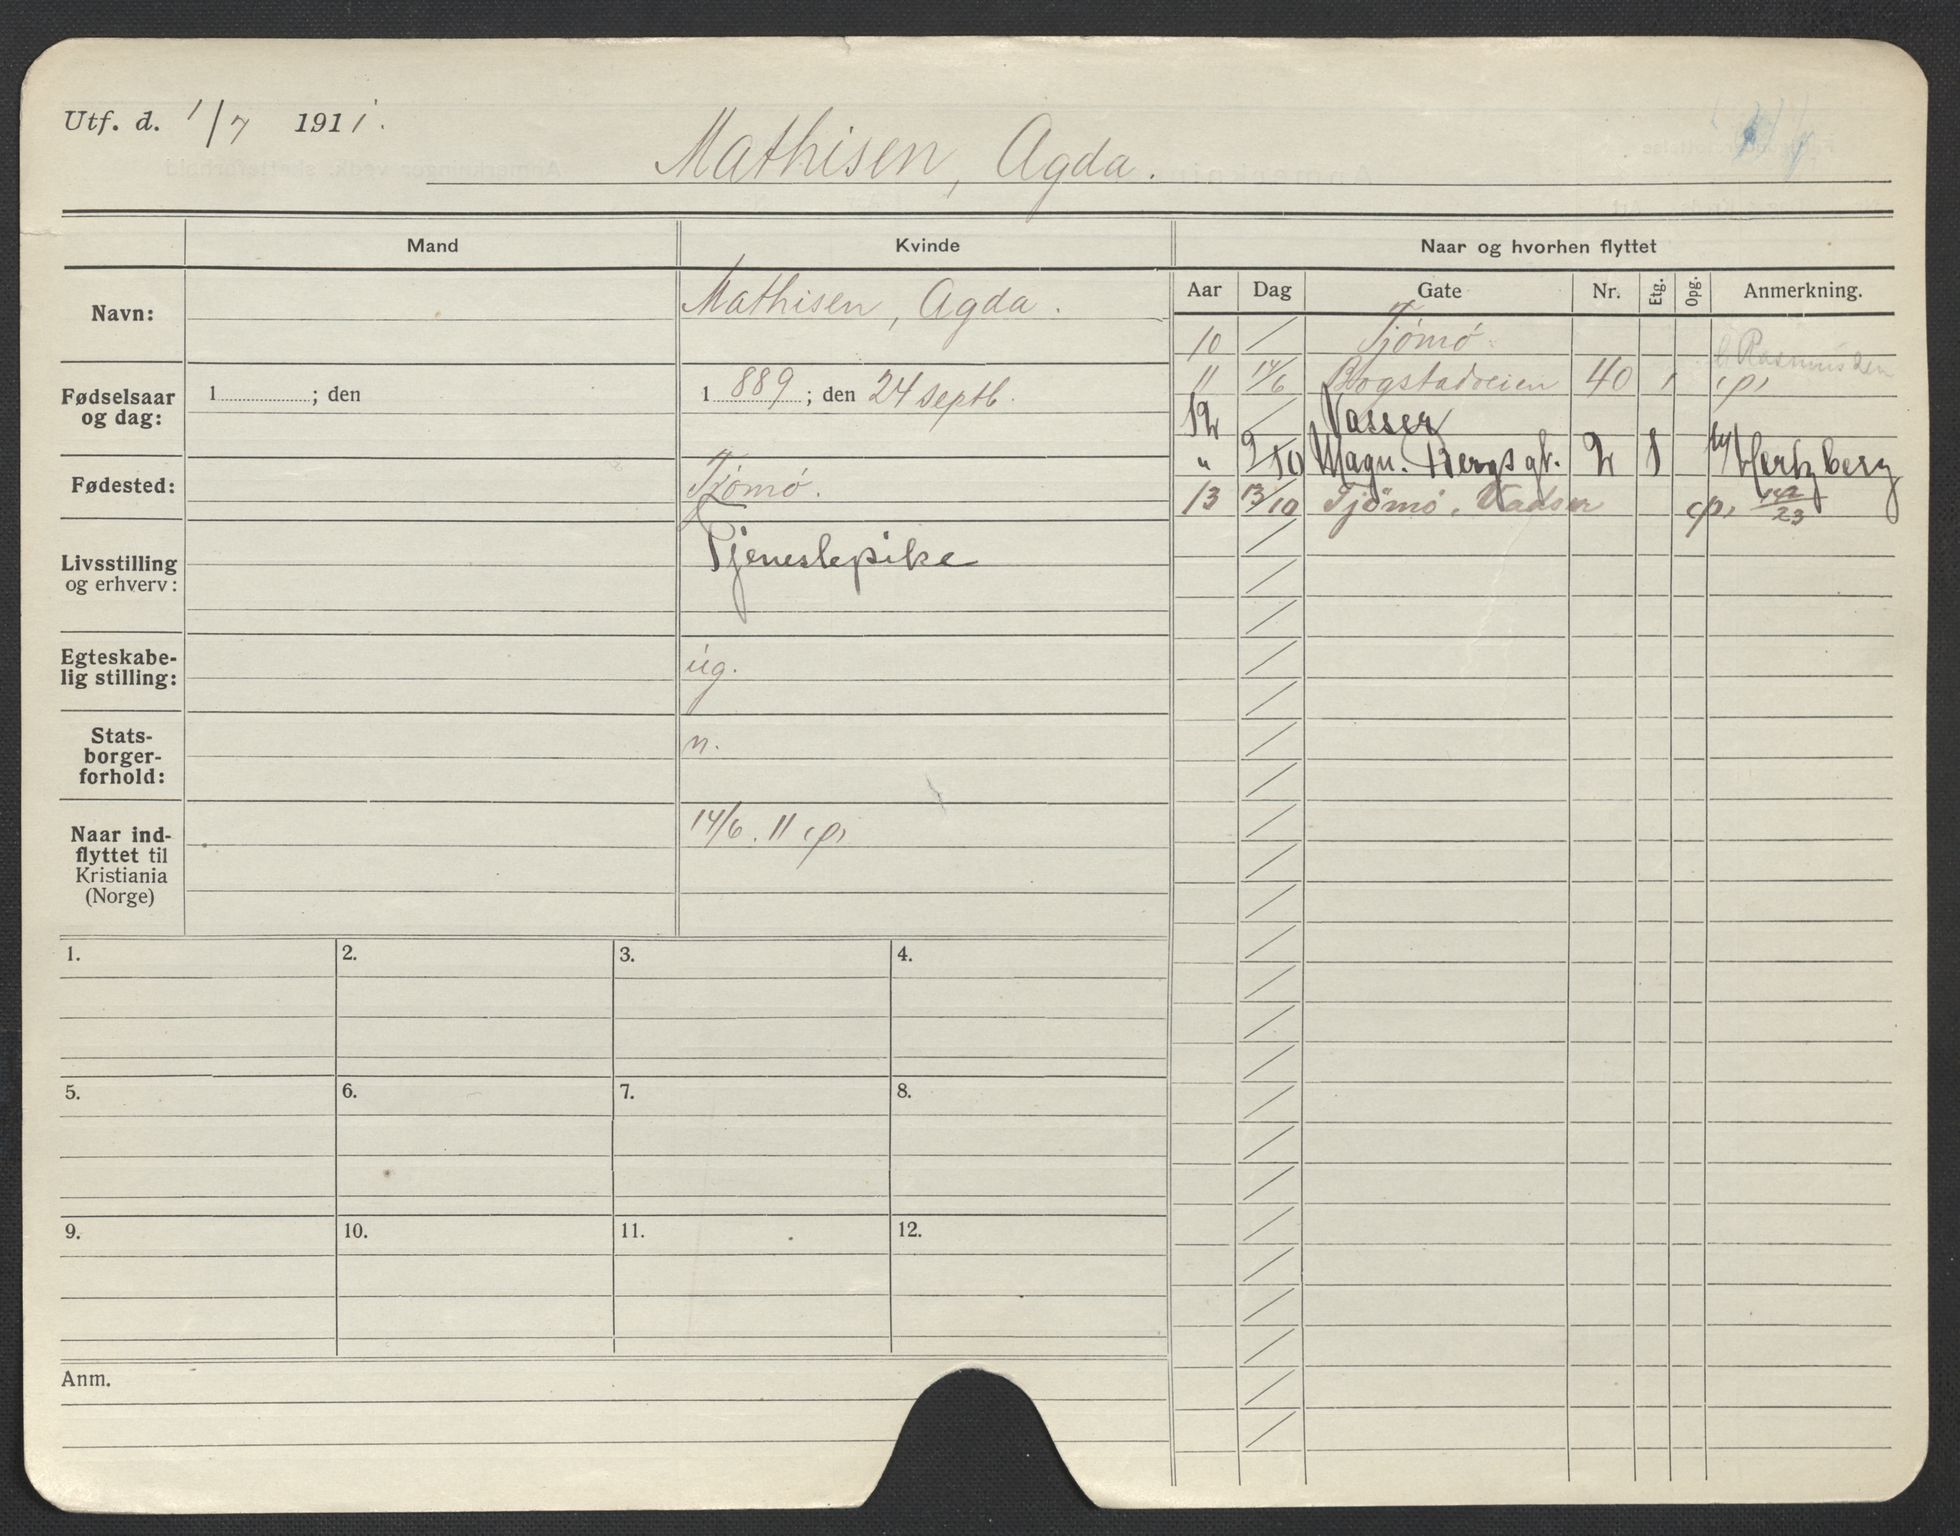 Utf. d. 1/7 1911.
Mathisen, Agda.
Mand
Kvinde
Naar og hvorhen flyttet
Navn:
Mathisen, Agda.
Fødselsaar og dag:
1 ; den
1 889 ; den 24 septb.
Fødested:
Tjømø.
Livsstilling og erhverv:
Tjenestepike
Egteskabe-
lig stilling:
ug.
Stats-
borger-
forhold:
n.
Naar ind-
flyttet til
Kristiania
(Norge)
14/6. 11
1. 2. 3. 4.
5. 6. 7. 8.
9. 10. 11. 12.
Anm.
Aar Dag Gate Nr. Etg. Opg. Anmerkning.
10 Tjømø
b. Rasmussen
11 14/6 Bogstadveien 40 1
12 Vasser
" 9/10 Magn. Bergs gt. 2 1 Hertzberg
13 13/10 Tjømø, Vadser 142/23